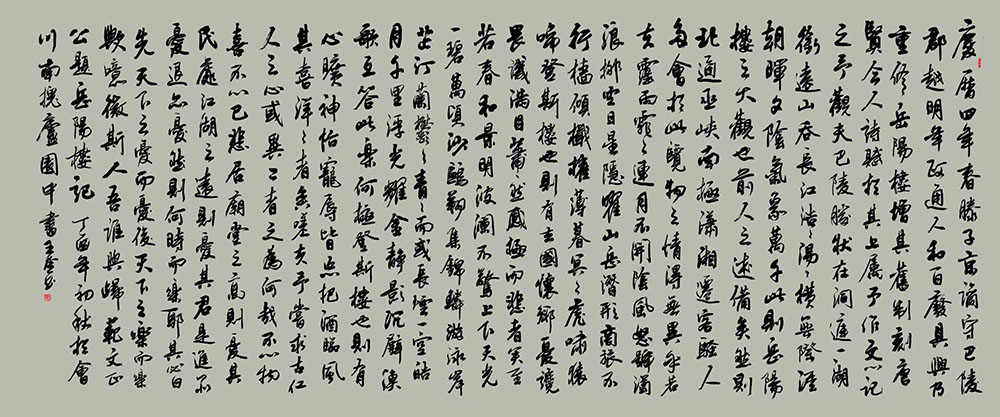 慶曆四年春滕子京謫守巴陵
郡越明年政通人和百廢具興乃
重修岳陽樓增其舊制刻唐
賢今人詩賦於其上屬予作文以記
之予觀夫巴陵勝狀在洞庭一湖
銜遠山吞長江浩々湯々橫無際涯
朝暉夕陰氣象萬千此則岳陽
樓之大觀也前人之述備矣然則
北通巫峽南極瀟湘遷客騷人
多會於此覽物之情得無異乎若
夫霪雨霏々連月不開陰風怒號濁
浪排空日星隱曜山岳潛形商旅不
行檣傾檝摧薄暮冥々虎嘯猿
啼登斯樓也則有去國懷鄉憂讒
畏譏滿目蕭然感極而悲者矣至
若春和景明波瀾不驚上下天光
一碧萬頃沙鷗翔集錦鱗游泳岸
芷汀蘭鬱々青々而或長煙一空皓
月千里浮光耀金靜影沉璧漁
歌互答此樂何極登斯樓也則有
心曠神怡寵辱皆忘把酒臨風
其喜洋々者矣嗟夫予嘗求古仁
人之心或異二者之為何哉不以物
喜不以己悲居廟堂之高則憂其
民處江湖之遠則憂其君是進亦
憂退亦憂然則何時而樂耶其必曰
先天下之憂而憂後天下之樂而樂
歟噫微斯人吾誰與歸 範文正
公題岳陽樓記 丁酉年初秋於會
川南挽廬國中書